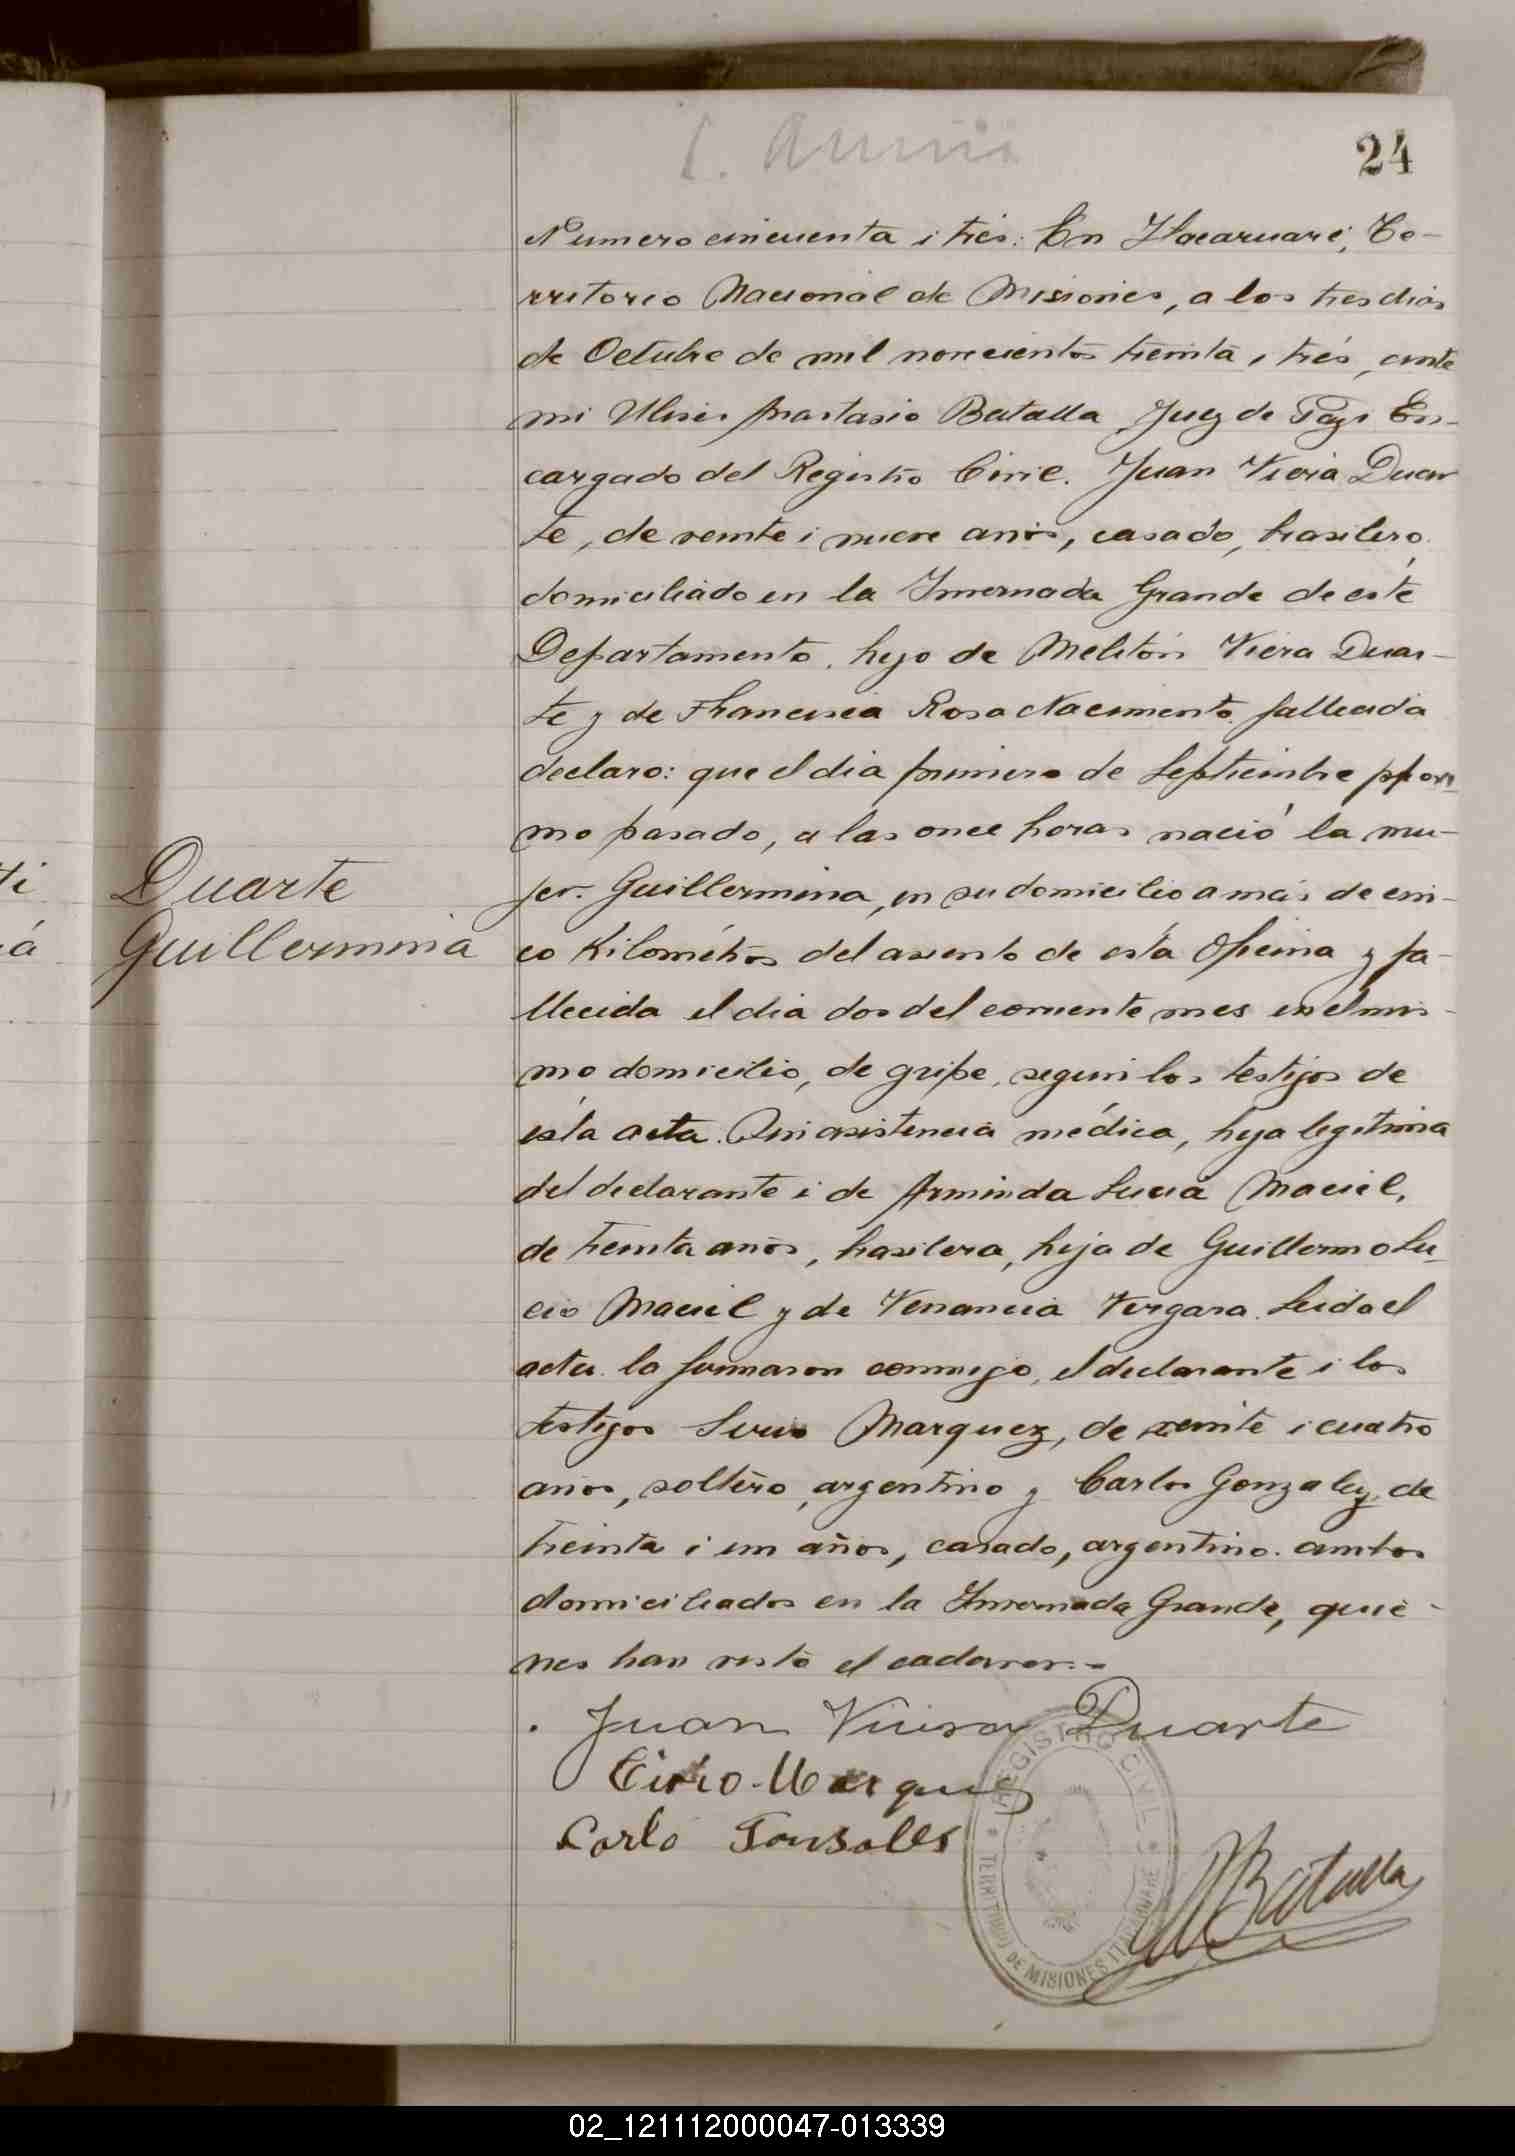 24
Numero cincuenta i trés: En Itacaruaré, Te-
rritorio Nacional de Misiones, a los tres dias
de Octubre de mil novecientos treinta i trés, ante
mi Ulises Anastasio Batalla Juez de Paz i En-
cargado del Registro Civil. Juan Vieia Duar
te, de veinte i nueve años, casado, brasilero,
domiciliado en la Invernada Grande de éste
Departamento, hijo de Melitón Viera Duar-
te y de Francisca Rosa Nacimento fallecida
declaro: que el dia primero de Septiembre pproxi
mo pasado, a las once horas nació la mu-
jer. Guillermina, en su domicilio a más de cin-
Duarte
Guillermina
co Kilométros del asiento de esta Oficina y fa-
llecida el dia dos del corriente mes en el mis-
mo domicilio, de gripe, segun los testigos de
ésta acta. Sin asistencia médica, hija legítima
del declarante i de Arminda Lucia Maciel,
de treinta años, brasilera, hija de Guillermo Lu-
cio Maciel y de Venancia Vergara. Leida el
acta la firmaron conmigo, el declarante i los
testigos Marquez, de veinte i cuatro
años, soltero, argentino y Carlos Gonzalez, de
treinta i un años, casado, argentino. ambos
domiciliados en la Invernada Grande, quie-
nes han visto el cadaver.-
Juan Vieira Duarte
Cirio Marques
Carlo Gonsales
REGISTRO CIVIL
TERRITORIO DE MISIONES ITACARUARE
Batalla
02_121112000047-013339